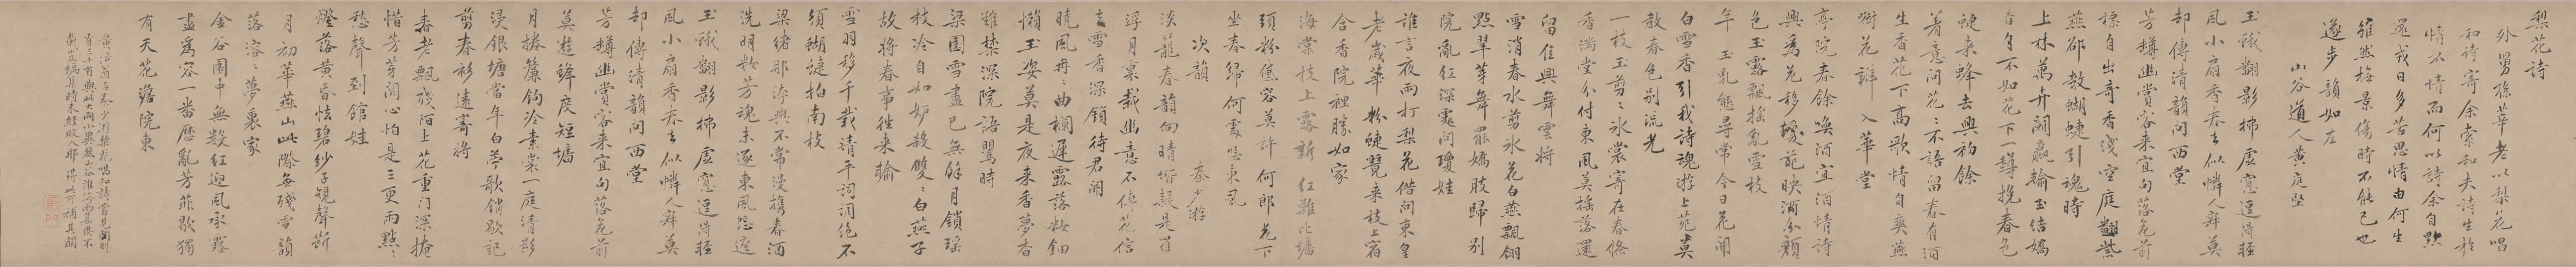 梨花詩
外舅孫莘老以梨花唱
和詩寄余索和夫詩生於
情不情而何以詩余自黜
還我日多苦思情由何生
雖然撫景傷時不能已也
遂步韻如左
山谷道人黃庭堅
玉蛾翻影拂虛寬逞得輕
風小扇香吞去似憐人辭莫
却傳清韻問西堂
芳罇幽賞客來宜句落花前
標自出奇香淺空庭翻紫
燕郤教蝴蝶引魂時
上林萬卉鬭贏輸玉結嬌
香自不如花下一罇挽春色
蜨來蜂去興初餘
著意問花花不語留春有酒
生香花下高歌情自奭燕
啣花辭入華堂
亭院春餘喚酒宜酒情詩
興為花移暖苑映酒分顏
色玉露飄搖亂雪枝
年玉亂態尋常今日花開
白雪香引我詩魂游上苑莫
教春色別流光
一枝玉剪剪冰裳寄在春條
香滿堂分付東風莫搖落還
留佳興舞雲將
雪消春水剪冰花白燕飄翎
點翠芽舞罷嬌肢歸別
院亂紅深處問瓊娃
誰言夜雨打梨花借問東皇
老歲華粉蜨雙來枝上宿
含香院裡勝如家
海棠枝上露新紅難比墻
頭粉黛容莫許何郎花下
坐春歸何處怨東風
次韻
秦少游
淡籠春韻向晴墻疑是羅
浮月裏栽幽意不傳花信
去雪香深鎖待君開
曉風冉曲欄遲露落妝鈿
懶玉姿莫是夜來香夢杳
難禁深院語鶯時
梁園雪盡已無餘月鎖瑤
枝冷自如妒殺雙雙白燕子
故將春事徃來輸
雪羽移干栽清平詞調絕不
須蝴蜨拍南枝
梁緒那濟興不常漫攜春酒
洗明妝芳魂未逐東風怨遮
玉蛾翻影拂虛寬逞得輕
風小扇香吞去似憐人辭莫
却傳清韻問西堂
芳罇幽賞客來宜句落花前
莫遊蜂度短墻
月捲簾鈎冷素裳庭清影
浸銀塘當年白苧歌銷歇記
剪春衫遠寄將
春老飄殘陌上花重門深掩
惜芳芽關心怕是三更雨點點
愁聲到館娃
燈落黃昏怯碧紗子規聲斷
月初華燕山此際每殘雪韻
落溶溶夢裏家
金谷園中無數紅迎風承露
盡為容一番歷亂芳菲歇獨
有天花澹院東
黃涪翁与秦少游梨花唱和詩嘗見圖刻